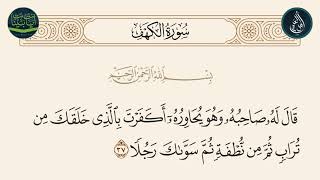 سُورَةُ الكَهۡفِ
بِسۡمِ ٱللَّهِ ٱلرَّحۡمَٰنِ ٱلرَّحِيمِ
قَالَ لَهُۥ صَاحِبُهُۥ وَهُوَ يُحَاوِرُهُۥٓ أَكَفَرۡتَ بِٱلَّذِي خَلَقَكَ مِن
تُرَابٖ ثُمَّ مِن نُّطۡفَةٖ ثُمَّ سَوَّىٰكَ رَجُلٗا ٣٧